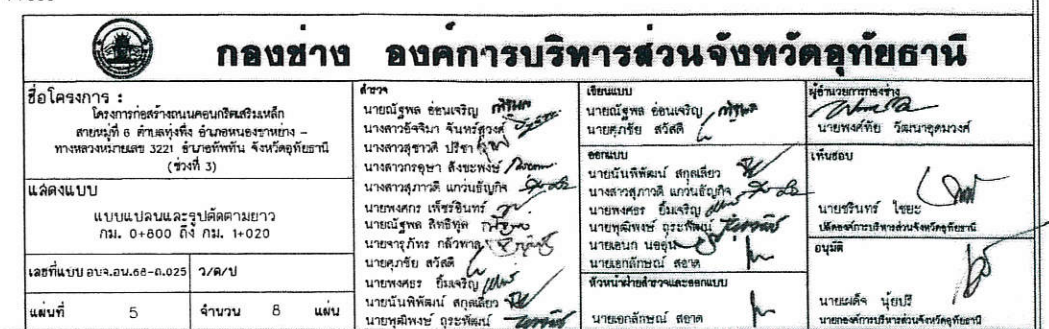 กองช่าง องค์การบริหารส่วนจังหวัดอุทัยธานี
ชื่อโครงการ :
โครงการก่อสร้างถนนคอนกรีตเสริมเหล็ก
สายหมู่ที่ 6 ตำบลทุ่งพึ่ง อำเภอหนองขาหย่าง -
ทางหลวงหมายเลข 3221 อำเภอทัพทัน จังหวัดอุทัยธานี
(ช่วงที่ 3)
แสดงแบบ
แบบแปลนและรูปตัดตามยาว
กม. 0+800 ถึง กม. 1+020
เลขที่แบบ อบจ.อน.68-ถ.025 ว/ด/ป
แผ่นที่ 5 จำนวน 8 แผ่น
สำรวจ
นายณัฐพล อ่อนเจริญ
นางสาวอัจจิมา จันทร์สุวงศ์
นางสาวสุชาวดี ปรีชา
นางสาวกรอุษา สังขะพงษ์
นางสาวสุภาวดี แกว่นธัญกิจ
นายพงศกร เพ็ชร์อินทร์
นายณัฐพล สิทธิทูล
นายจารุภัทร กลัวพาล
นายศุภชัย สวัสดี
นายพงศธร ยิ้มเจริญ
นายนันพิพัฒน์ สกุลเลี่ยว
นายพุฒิพงษ์ ถุระพัฒน์
เขียนแบบ
นายณัฐพล อ่อนเจริญ
นายศุภชัย สวัสดี
ออกแบบ
นายนันพิพัฒน์ สกุลเลี่ยว
นางสาวสุภาวดี แกว่นธัญกิจ
นายพงศธร ยิ้มเจริญ
นายพุฒิพงษ์ ถุระพัฒน์
นายเอนก นออุ่น
นายเอกลักษณ์ สอาด
หัวหน้าฝ่ายสำรวจและออกแบบ
นายเอกลักษณ์ สอาด
ผู้อำนวยการกองช่าง
นายพงศ์ทัย วัฒนาอุดมวงศ์
เห็นชอบ
นายชรินทร์ ไชยะ
ปลัดองค์การบริหารส่วนจังหวัดอุทัยธานี
อนุมัติ
นายเผด็จ นุ้ยปรี
นายกองค์การบริหารส่วนจังหวัดอุทัยธานี